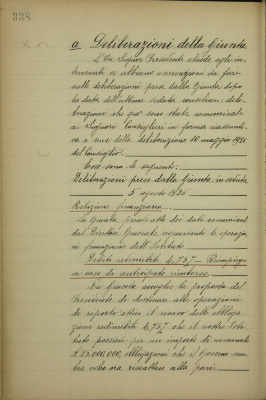 338
a Deliberazioni della Giunta
L'On. Signor Presidente chiede agli in-
tervenuti se abbiano osservazioni da fare
sulle deliberazioni prese dalla Giunta dopo
la data dell'ultima seduta consiliare: deli-
berazioni che già sono state comunicate
ai Signori Consiglieri in forma riassunti-
va a sensi della deliberazione 10 maggio 1921
del Consiglio.
Esse sono le seguenti:
Deliberazioni prese dalla Giunta in seduta
5 agosto 1926
Relazione finanziaria.
La Giunta prende atto dei dati comunicati
dal Direttore Generale riguardanti le operazio-
ni finanziarie dell'Istituto.
Debito redimibile 4,75% - Rimpiego
in caso di anticipato rimborso.
La Giunta accoglie la proposta del
Presidente di destinare alle operazioni
di riporto attivi il ricavo delle Obbliga-
zioni redimibili 4,75% che il nostro Isti-
tuto possiede per un importo di nominali
L. 25.000.000, obbligazioni che il Governo sem-
bra voler ora riscattare alla pari.